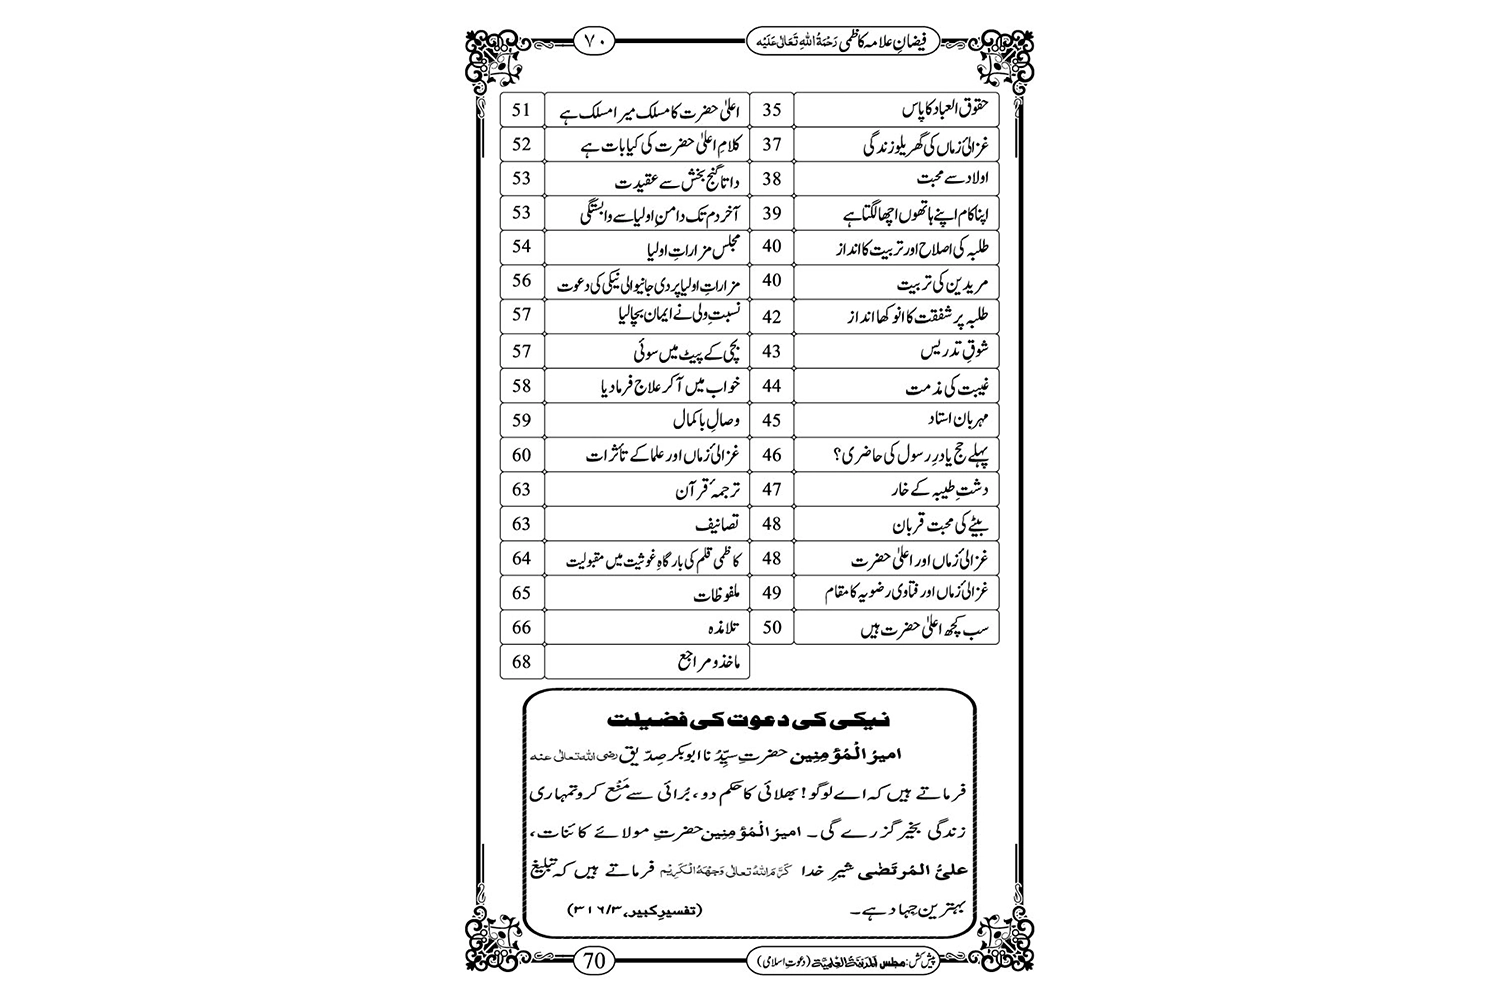 فیضانِ علامہ کاظمی رَحْمَۃُ اللہِ تَعَالٰی عَلَیْہ ۷۰
حقوق العباد کا پاس 35 اعلیٰ حضرت کا مسلک میرا مسلک ہے 51
غزالیٔ زماں کی گھریلو زندگی 37 کلامِ اعلیٰ حضرت کی کیا بات ہے 52
اولاد سے محبت 38 داتا گنج بخش سے عقیدت 53
اپنا کام اپنے ہاتھوں اچھا لگتا ہے 39 آخر دم تک دامنِ اولیا سے وابستگی 53
طلبہ کی اصلاح اور تربیت کا انداز 40 مجلس مزاراتِ اولیا 54
مریدین کی تربیت 40 مزاراتِ اولیا پر دی جانیوالی نیکی کی دعوت 56
طلبہ پر شفقت کا انوکھا انداز 42 نسبتِ ولی نے ایمان بچالیا 57
شوقِ تدریس 43 بچی کے پیٹ میں سوئی 57
غیبت کی مذمت 44 خواب میں آکر علاج فرمادیا 58
مہربان استاد 45 وصالِ باکمال 59
پہلے حج یا درِ رسول کی حاضری؟ 46 غزالیٔ زماں اور علما کے تأثرات 60
دشتِ طیبہ کے خار 47 ترجمۂ قرآن 63
بیٹے کی محبت قربان 48 تصانیف 63
غزالیٔ زماں اور اعلیٰ حضرت 48 کاظمی قلم کی بارگاہِ غوثیت میں مقبولیت 64
غزالیٔ زماں اور فتاوی رضویہ کا مقام 49 ملفوظات 65
سب کچھ اعلیٰ حضرت ہیں 50 تلامذہ 66
ماخذ و مراجع 68
نیکی کی دعوت کی فضیلت
امیرُ الْمُؤمِنِین حضرتِ سیِّدُنا ابوبکر صِدّیق رضی اللہ تعالٰی عنہ
فرماتے ہیں کہ اے لوگو! بھلائی کا حکم دو، بُرائی سے مَنْع کرو تمہاری
زندگی بخیر گزرے گی۔ امیرُ الْمُؤمِنِین حضرتِ مولائے کائنات،
علیُّ المُرتَضٰی شیرِ خدا کَرَّمَ اللہُ تعالٰی وَجْہَہُ الْکَرِیْم فرماتے ہیں کہ تبلیغ
بہترین جِہاد ہے۔ (تفسیرِ کبیر، ۳/۳۱۶)
پیش کش: مجلس المدینۃ العلمیۃ (دعوتِ اسلامی) 70